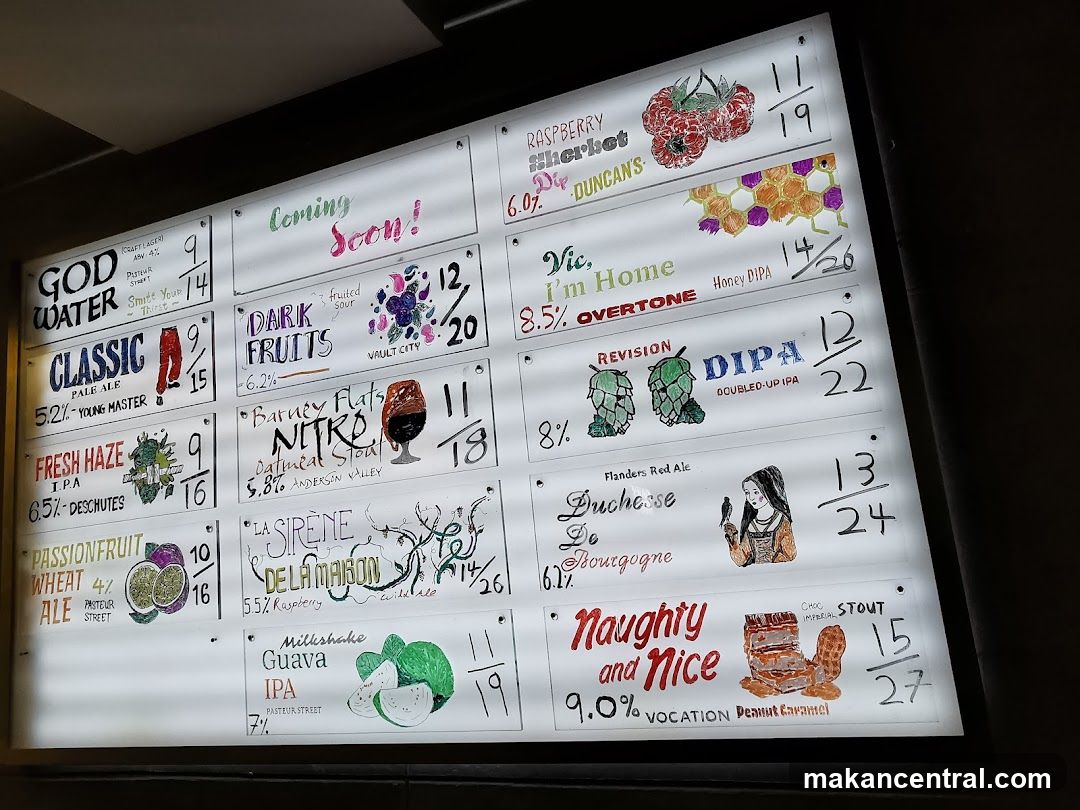 GOD
WATER
(CRAFT LAGER)
ABV. 4%
PASTEUR
STREET
Smite Your
Thirst
9
14
CLASSIC
PALE ALE
5.2% - YOUNG MASTER
9
15
FRESH HAZE
I.P.A
6.5% - DESCHUTES
9
16
PASSIONFRUIT
WHEAT
ALE
4%
PASTEUR
STREET
10
16
Coming
Soon!
DARK
FRUITS
fruited
sour
6.2%
VAULT CITY
12
20
Barney Flats
NITRO
Oatmeal Stout
5.8% ANDERSON VALLEY
11
18
LA
SIRÈNE
DE LA MAISON
5.5% Raspberry Wild Ale
14/26
Milkshake
Guava
IPA
PASTEUR STREET
7%
11
19
RASPBERRY
Sherbet
Dip
6.0% DUNCAN'S
11
19
Vic,
I'm Home
8.5% OVERTONE
Honey DIPA
14/26
REVISION
DIPA
DOUBLED-UP IPA
8%
12
22
Flanders Red Ale
Duchesse
De
Bourgogne
6.2%
13
24
Naughty
and Nice
9.0% VOCATION Peanut Caramel
CHOC
IMPERIAL STOUT
15
27
makancentral.com